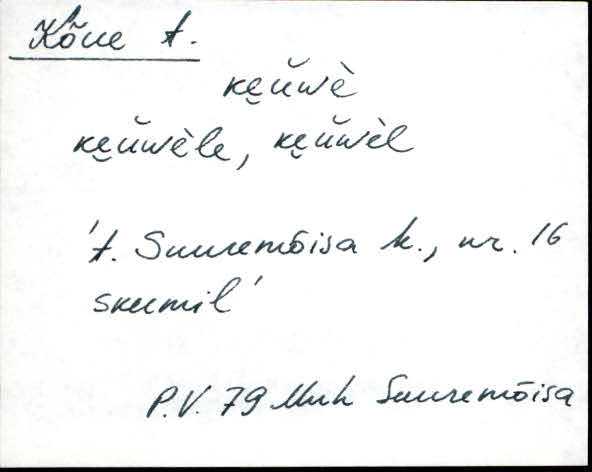 Kõue t.
ke̮ŭwè
ke̮ŭwèle, ke̮ŭwèl
't. Suuremõisa k., nr. 16
skeemil'
P.V. 79 Muh Suuremõisa